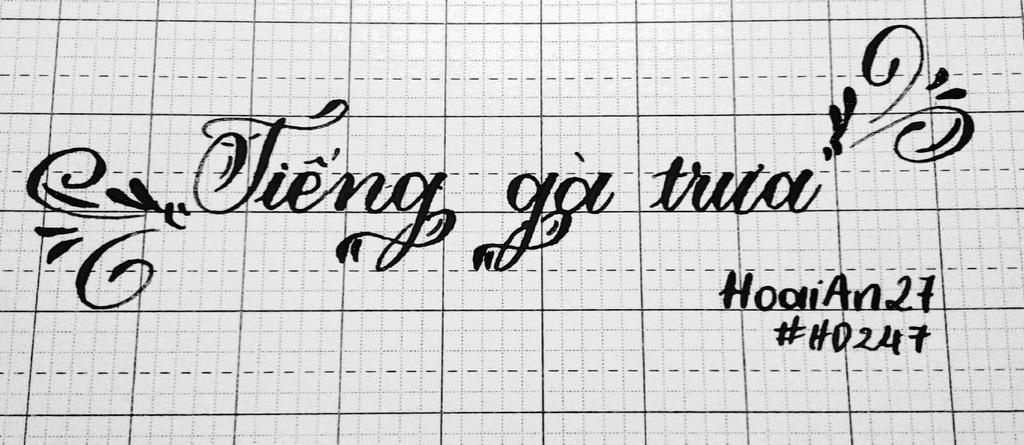 Tiếng gà trưa
HoaiAn27
#HD247